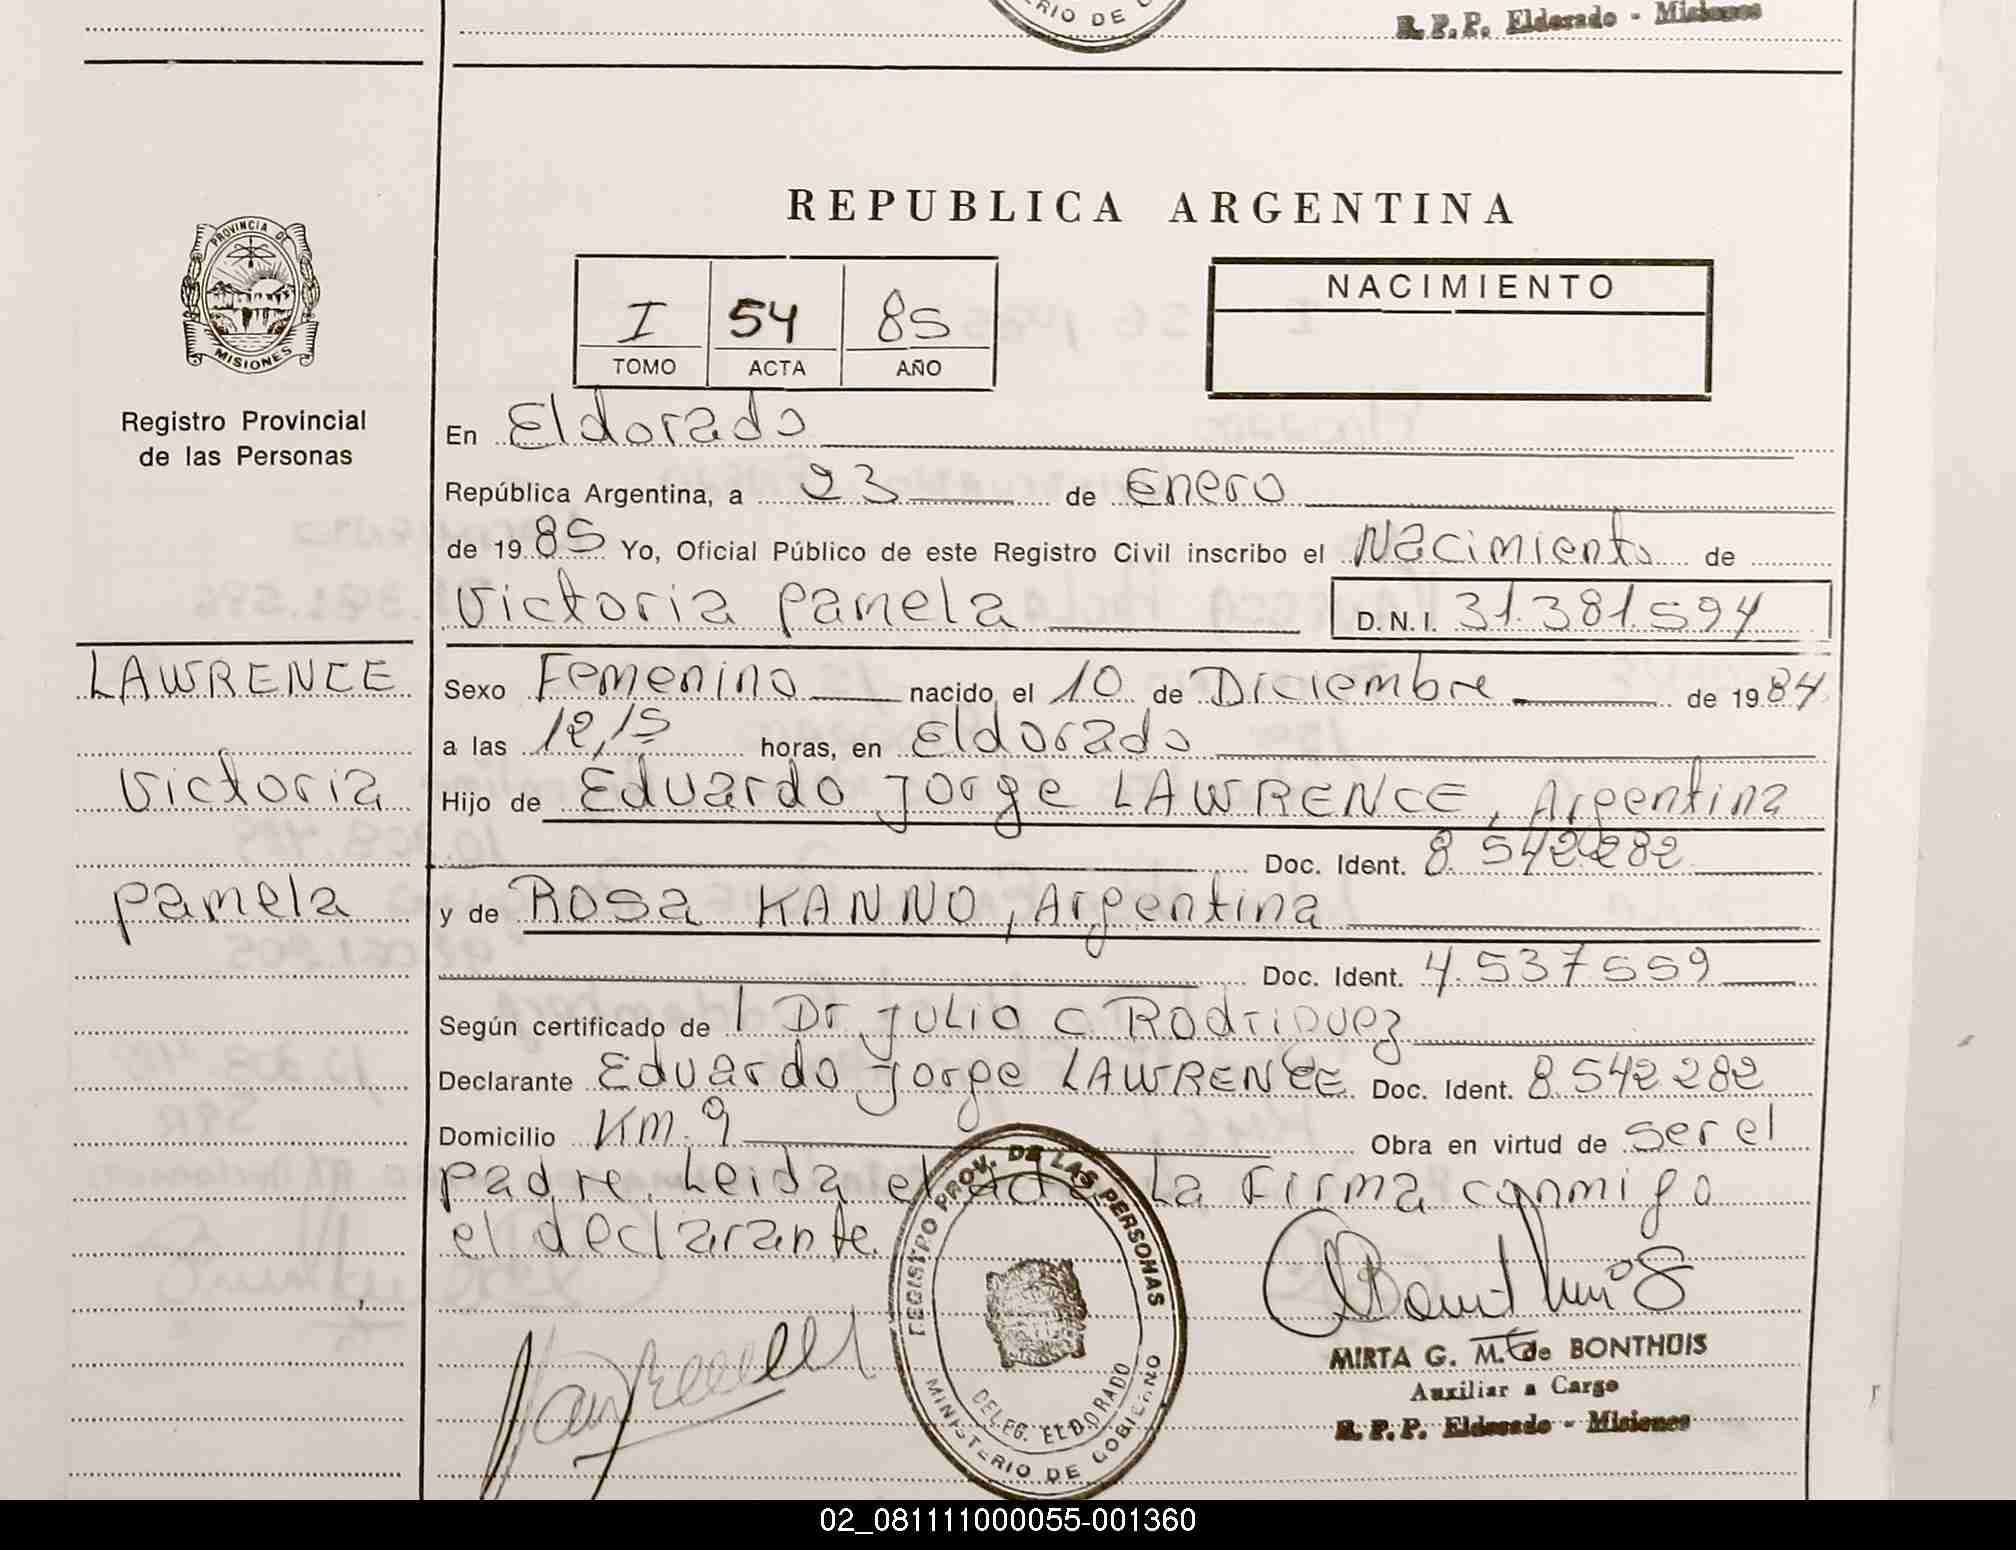 RIO DE
R. P. P. Eldorado - Misiones
REPUBLICA ARGENTINA
PROVINCIA DE
MISIONES
Registro Provincial
de las Personas
I 54 85
TOMO ACTA AÑO
NACIMIENTO
En Eldorado
República Argentina, a 23 de Enero
de 19 85 Yo, Oficial Público de este Registro Civil inscribo el Nacimiento de
Victoria Pamela D. N. I. 31.381.594
LAWRENCE
Victoria
Pamela
Sexo Femenino nacido el 10 de Diciembre de 19 84
a las 12,15 horas, en Eldorado
Hijo de Eduardo Jorge LAWRENCE, Argentina
Doc. Ident. 8.542.282
y de Rosa KANNO, Argentina
Doc. Ident. 4.537.559
Según certificado de l Dr Julio C Rodriguez
Declarante Eduardo Jorge LAWRENCE Doc. Ident. 8.542.282
Domicilio Km. 9 Obra en virtud de ser el
padre. Leida el acta La Firma conmigo
el declarante.
REGISTRO PROV. DE LAS PERSONAS
DELEG. ELDORADO
MINISTERIO DE GOBIERNO
MIRTA G. M. de BONTHUIS
Auxiliar a Cargo
R. P. P. Eldorado - Misiones
02_081111000055-001360